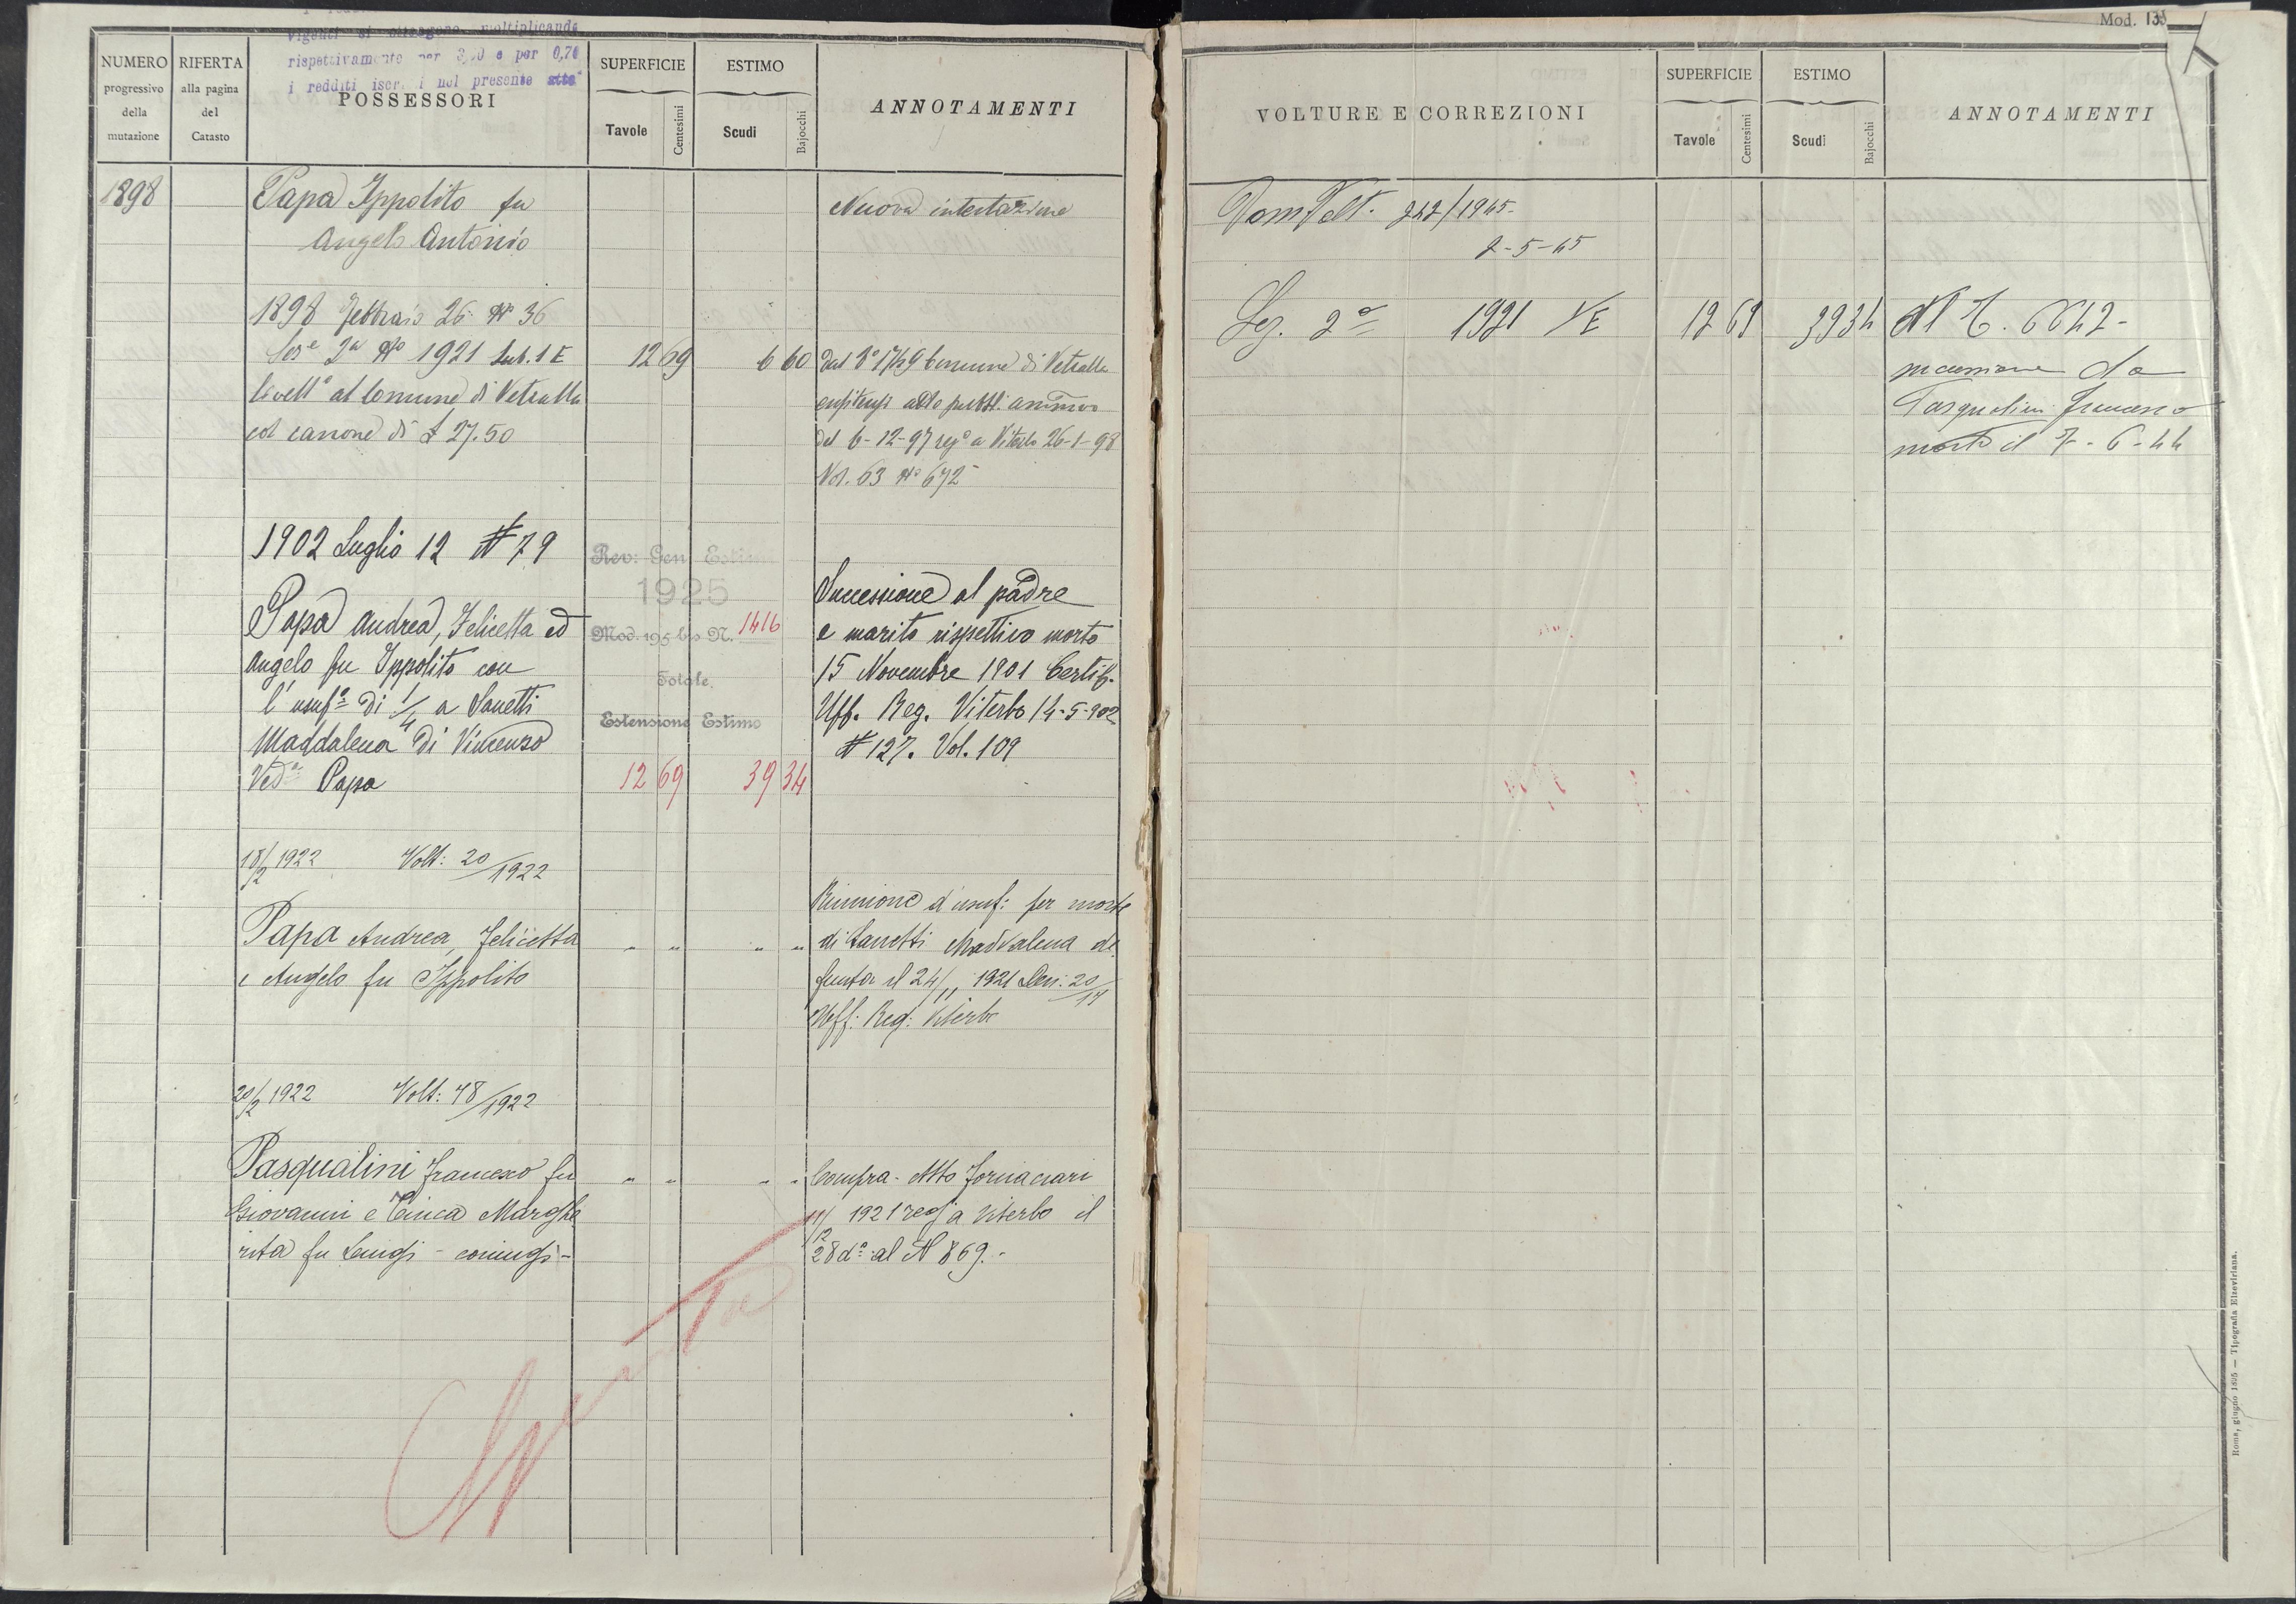 vigenti si ottengono moltiplicando
rispettivamente per e per 0,70
i redditi iscr i nel presente atto
NUMERO
progressivo
della
mutazione
RIFERTA
alla pagina
del
Catasto
POSSESSORI
SUPERFICIE
Tavole
Centesimi
ESTIMO
Scudi
Bajocchi
ANNOTAMENTI
1898
Papa Ippolito fu
Angelo Antonio
Nuova intestazione
1898 Febbraio 26 No 36
Seze 2a No 1921 Sub. 1 E 12 69 6 60
livello al Comune di Vetralla
col canone di £ 27.50
dal No 1749 Comune di Vetralla
enfiteusi atto pubbl. amm.vo
del 6-12-97 rego a Viterbo 26-1-98
Vol. 63 No 672
1902 Luglio 12 N 79
Papa Andrea, Felicetta ed
Angelo fu Ippolito con
l'usufo di 1/4 a Sanetti
Maddalena di Vincenzo
Veda Papa
Rev: Gen Estimi
1925
Mod. 195 bis N. 1416
Totale
Estensione Estimo
12 69 39 34
Successione al padre
e marito rispettivo morto
15 Novembre 1901 Certif.
Uff. Reg. Viterbo 14-5-902
N 127. Vol. 109
18/2 1922 Volt: 20/1922
Papa Andrea, Felicetta " " " "
e Angelo fu Ippolito
Riunione d'usuf: per morte
di Sanetti Maddalena de
funta il 24/11 1921 Den: 20/17
Uff: Reg: Viterbo
20/2 1922 Volt: 48/1922
Pasqualini Francesco fu " " " "
Giovanni e Cinca Marghe
rita fu Luigi - coniugi -
Compra - Atto Fornaciari
11/12 1921 reg a Viterbo il
28 do al N 869.-
Mod. 135
VOLTURE E CORREZIONI
SUPERFICIE
Tavole
Centesimi
ESTIMO
Scudi
Bajocchi
ANNOTAMENTI
Volt. 242/1945-
2-5-45
Sez. 2a 1921 1/E 12 69 39 34 Al C. 6642-
successione da
Pasqualini Francesco
morto il 7-6-44
Roma, giugno 1895 — Tipografia Elzeviriana.